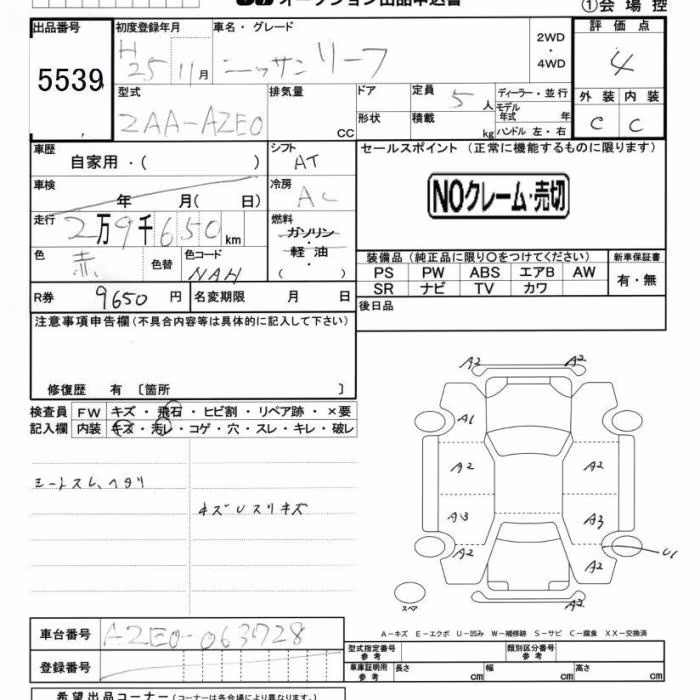 オークション出品申込書
①会場控
出品番号 5539
初度登録年月 H25 11月
車名・グレード ニッサン リーフ
2WD・4WD
評価点 4
型式 ZAA-AZE0
排気量 CC
ドア
形状
定員 5人
積載 kg
ディーラー・並行
モデル年式 年
ハンドル 左・右
外装 C
内装 C
車歴 自家用・( )
シフト AT
セールスポイント (正常に機能するものに限ります)
車検 年 月( 日)
冷房 AC
NOクレーム・売切
走行 2万9千650km
燃料 ガソリン・軽油・( )
色 赤 色替
色コード NAH
装備品 (純正品に限り○をつけてください)
新車保証書
PS PW ABS エアB AW
有・無
SR ナビ TV カワ
R券 9650円
名変期限 月 日
後日品
注意事項申告欄(不具合内容等は具体的に記入して下さい)
修復歴 有 〔箇所 〕
検査員 FW キズ・飛石・ヒビ割・リペア跡・×要
記入欄 内装 キズ・汚レ・コゲ・穴・スレ・キレ・破レ
シートスレ、ヘタリ
キズ リスリキズ
A2 A2
A1
A2 A2
A3 A3
A2 A2 U1
A2
スペア
A-キズ E-エクボ U-凹み W-補修跡 S-サビ C-腐食 XX-交換済
車台番号 AZE0-063728
登録番号
型式指定番号 参考
類別区分番号 参考
車庫証明用 参考 長さ cm 幅 cm 高さ cm
希望出品コーナー (コーナーは各会場により異なります。)